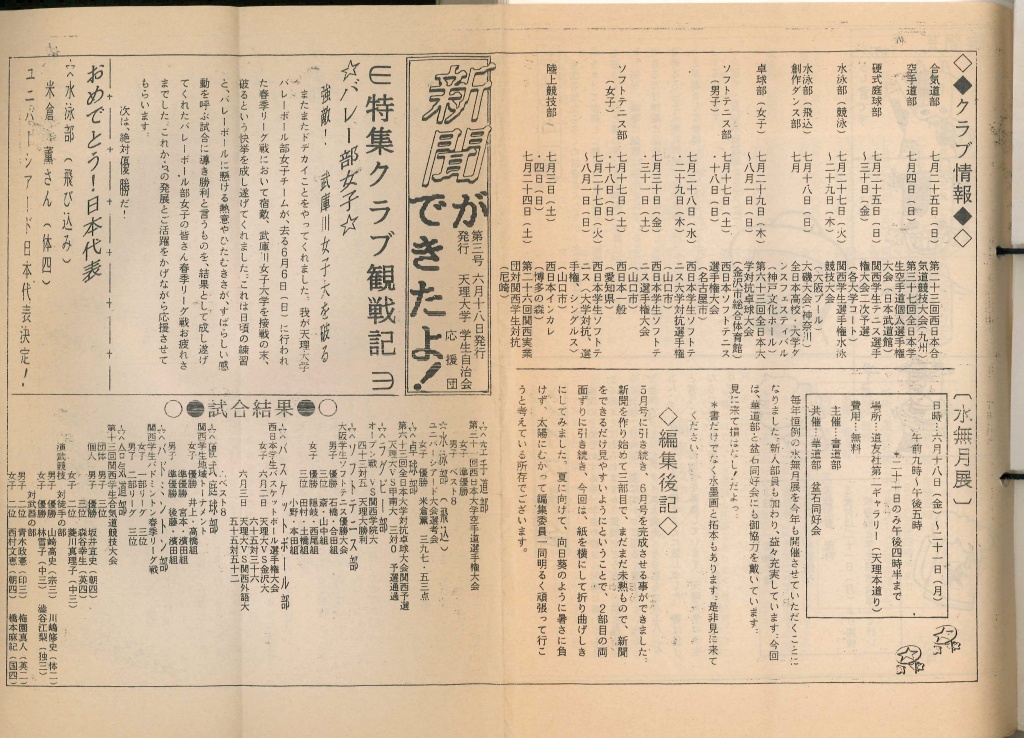 ◇◆クラブ情報◆◇
合気道部
七月二十五日（日）
第二十三回西日本合
気道競技大会（九州）
空手道部
七月四日（日）
第三十七回全日本学
生空手道個人選手権
大会（日本武道館）
硬式庭球部
七月二十五日（日）
・三十日（金）
関西学生テニス選手
権大会二次予選
（各大学コート）
水泳部（競泳）
七月二十七日（火）
～二十九日（木）
関西学生選手権水泳
競技大会
（大阪プール）
水泳部（飛込）
七月十八日（日）
大磯大会（神奈川）
創作ダンス部
七月
全日本高校・大学ダ
ンスフェスティバル
（神戸文化ホール）
卓球部（女子）
七月二十九日（木）
～八月一日（日）
第六十三回全日本大
学対抗卓球大会
（金沢市総合体育館）
ソフトテニス部
（男子）
七月十七日（土）
・十八日（日）
西日本ソフトテニス
選手権大会
（名古屋市）
七月二十八日（水）
～二十九日（木）
西日本学生ソフトテ
ニス大学対抗選手権
（山口市）
七月三十日（金）
～三十一日（土）
西日本学生ソフトテ
ニス選手権大会
（山口市）
ソフトテニス部
（女子）
七月十七日（土）
・十八日（日）
西日本一般
（愛知県）
七月二十七日（火）
～八月一日（日）
西日本学生ソフトテ
ニス（大学対抗、選
手権、シングルス）
（山口市）
陸上競技部
七月三日（土）
・四日（日）
西日本インカレ
（博多の森）
七月二十四日（土）
第二十六回関西実業
団対関西学生対抗
（尼崎）
〔水無月展〕
日時…六月十八日（金）～二十一日（月）
午前九時～午後五時
＊二十一日のみ午後四時半まで
場所…道友社第二ギャラリー（天理本通り）
費用…無料
主催…書道部
共催…華道部　盆石同好会
毎年恒例の水無月展を今年も開催させていただくことに
なりました。新入部員も加わり、益々充実しています。今回
は、華道部と盆石同好会にも御協力を戴いています。
見に来て損はなしだよっ。
＊書だけでなく水墨画と拓本もあります。是非見に来て
ください。
◇編集後記◇
5月号に引き続き、6月号を完成させる事ができました。
新聞を作り始めて三部目で、まだまだ未熟もので、新聞
をできるだけ見やすいようにということで、2部目の両
面ずりに引き続き、今回は、紙を横にして折り曲げしき
にしてみました。夏に向けて、向日葵のように暑さに負
けず、太陽にむかって編集委員一同明るく頑張って行こ
うと考えている所存でございます。
新聞ができたよ！
第三号　六月十八日発行
発行　天理大学　学生自治会
応援団
∈特集クラブ観戦記∋
☆バレー部女子☆
強敵！　武庫川女子大を破る
またまたドデカイことをやってくれました。我が天理大学
バレーボール部女子チームが、去る6月6日（日）に行われ
た春季リーグ戦において宿敵、武庫川女子大学を接戦の末、
破るという快挙を成し遂げてくれました。これは日頃の練習
と、バレーボールに懸ける熱意やひたむきさが、すばらしい感
動を呼ぶ試合に導き勝利と言うものを、結果として成し遂げ
てくれたバレーボール部女子の皆さん春季リーグ戦お疲れさ
までした。これからの発展とご活躍をかげながら応援させて
もらいます。
次は、絶対優勝だ！
おめでとう！日本代表
∴∵水泳部（飛び込み）
米倉　薫さん（体四）
ユニバーシアード日本代表決定！
○●試合結果●○
∴∵空手道部
第三十一回西日本大学空手道選手権大会
女子　優勝
男子　ベスト8
☆水泳部（飛込）
ユニバーシアード大会選考会
優勝　米倉薫　三九七・五三点
∴∵卓球部
第六十三回全日本大学対抗卓球大会関西予選
天理大VS甲南大　三対0　予選通過
∴∵ラグビー部
オープン戦　VS関西学院大
四十三対五　天理大勝利
∴∵ソフトテニス部
大阪学生ソフトテニス優勝大会
男子　優勝　石橋・合田組
三位　森山・小山組
三位　田村・土權組
女子　優勝　隠樹・西尾組
三位　小野
∴∵バスケットボール部
西日本学生バスケットボール選手権大会
女子　六月二日　天理大VS金沢大
六十五対三十六
六月三日　天理大VS関西外語大
五十五対五十二
ベスト8
∴∵硬式庭球部
関西学生地域トーナメント
女子　優勝　宮本・福田組
準優勝　井上・高橋組
男子　準優勝　後藤・濱田組
∴∵バドミントン部
関西学生バドミントン春季リーグ戦
女子　一部リーグ　三位
男子　二部リーグ　三位
∴∵合気道部
第十三回関西学生合気道競技大会
団体　三位
個人　男子　優勝　坂井宜史（朝四）
三位　森谷幸生（英四）
女子　二位　藤川真理子（中三）
演武競技　対徒手の部
男子　優勝　山崎高史（宗三）　川嶋修史（体二）
女子　優勝　林雪子（中三）　澁谷江梨（独三）
対武器の部
男子　二位　青木政憲（印三）　梅園真人（英二）
女子　二位　西村文恵（朝四）　橋本麻紀（国四）